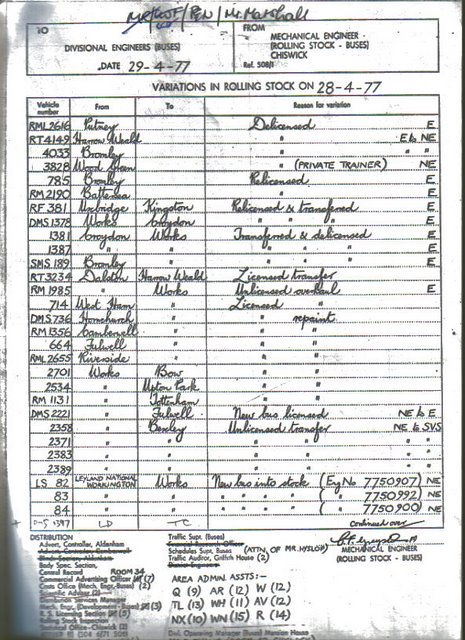 PEN / Mr. Marshall
TO
DIVISIONAL ENGINEERS (BUSES)
DATE 29-4-77
FROM
MECHANICAL ENGINEER -
(ROLLING STOCK - BUSES)
CHISWICK
Ref. 508/1
VARIATIONS IN ROLLING STOCK ON 28-4-77
Vehicle number From To Reason for variation
RML2616 Putney Delicensed E
RT4149 Harrow Weald " E to NE
4033 Bromley " " "
3828 Wood Green " (PRIVATE TRAINER) NE
785 Bromley Relicensed E
RM2190 Battersea " E
RF 381 Uxbridge Kingston Relicensed & transferred E
DMS1378 Works Croydon " " " E
1381 Croydon Works Transferred & delicensed E
1387 " " " " " E
SMS.189 Bromley " " " " E
RT3234 Dalston Harrow Weald Licensed transfer
RM1985 " Works Unlicensed overhaul E
714 West Ham " Licensed "
DMS.736 Hornchurch " " repaint
RM1356 Camberwell " " "
664 Fulwell " " "
RML2655 Riverside " " "
2701 Works Bow " "
2534 " Upton Park " "
RM1131 " Tottenham " "
DMS2221 " Fulwell New bus licensed NE to E
2358 " Bexley Unlicensed transfer NE to SVS
2371 " " " " " " "
2383 " " " " " " "
2389 " " " " " " "
LS 82 LEYLAND NATIONAL WORKINGTON Works New bus into stock (Eng No 7750907) NE
83 " " " " " " ( " 7750992) NE
84 " " " " " " ( " 7750900) NE
1397 LD TC continued over
DISTRIBUTION
Advert. Controller, Aldenham
Body Spec. Section,
Central Record ROOM 34
Commercial Advertising Office (7)
Costs Office (Mech. Engr. Buses) (2)
Scientific Adviser (2)
Mech. Engr. (Development - Buses) (3)
R. S. Licensing Section (3)
Rolling Stock Inspection
Technical Office - Chiswick (2)
Traffic Supt. (Buses)
Schedules Supt. Buses (ATTN. OF MR. HYSLOP)
Traffic Auditor, Griffith House (2)
AREA ADMIN. ASSTS:-
Q (9) AR (12) W (12)
TL (13) WH (11) AV (12)
NX (10) WN (15) R (14)
MECHANICAL ENGINEER
(ROLLING STOCK - BUSES)
Div. Operating Manager (Buses) Mansion House